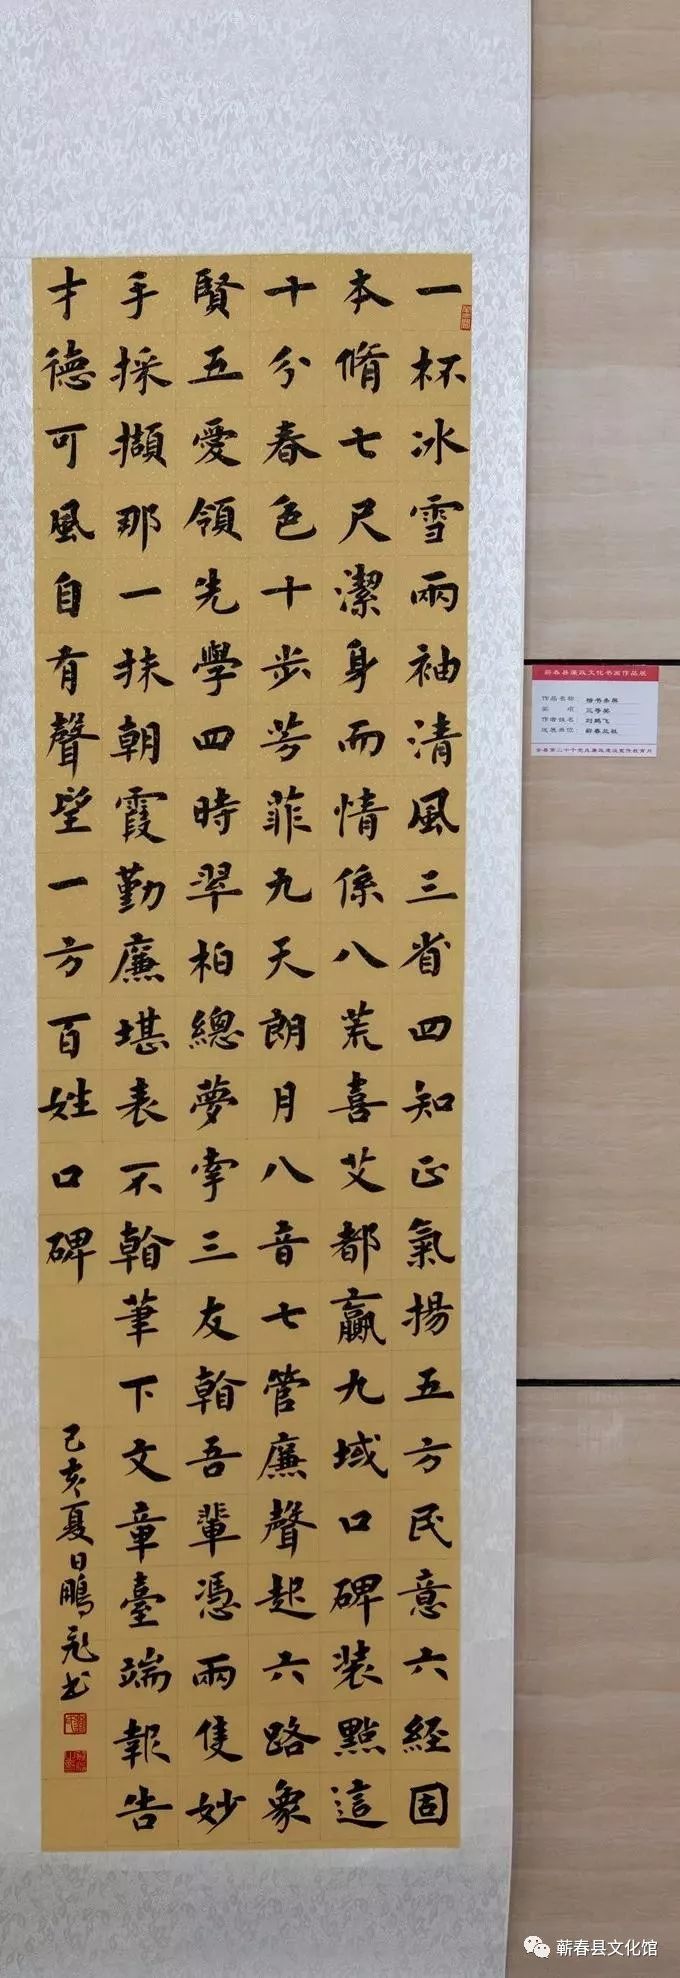 一杯冰雪兩袖清風三省四知正氣揚五方民意六經固
本脩七尺潔身而情係八荒喜艾都贏九域口碑装點這
十分春色十步芳菲九天朗月八音七管廉聲起六路象
賢五愛領先學四時翠柏總夢牽三友翰吾輩憑兩隻妙
手採擷那一抹朝霞勤廉堪表不翰筆下文章臺端報告
才德可風自有聲望一方百姓口碑
己亥夏日鵬飛書
蕲春县廉政文化书画作品展
作品名称：楷书条屏
奖项：三等奖
作者姓名：刘鹏飞
送展单位：蕲春
全县第二十个党风廉政建设宣传教育月
蕲春县文化馆